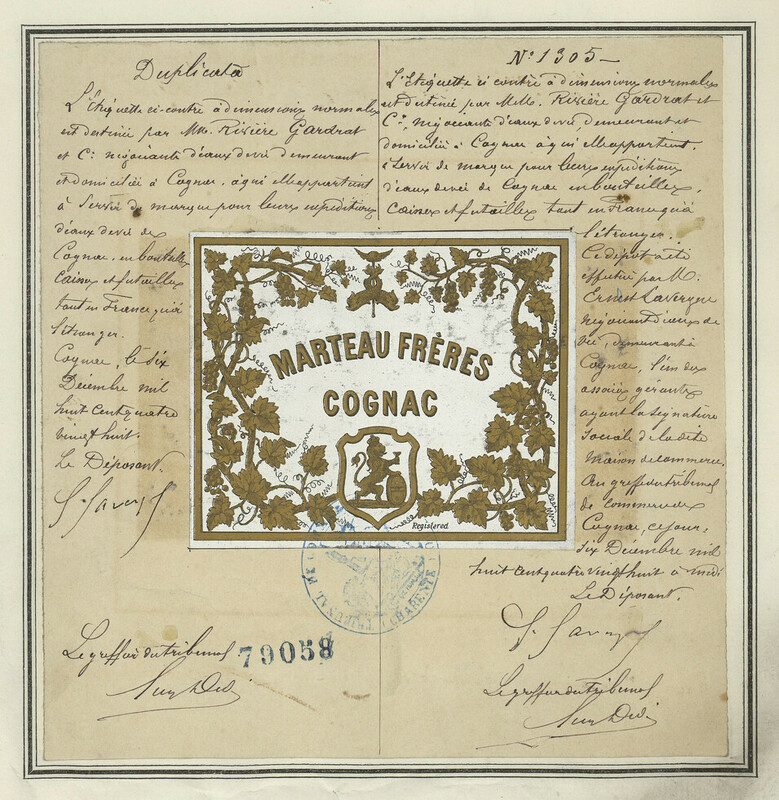 Duplicata
L'étiquette ci-contre à dimensions normales
est destinée par MM. Rivière Gardrat
et Cie négociants d'eaux de vie demeurant
et domiciliés à Cognac, à qui elle appartient
à servir de marque pour leurs expéditions
d'eaux de vie de
Cognac en bouteilles
Caisses et futailles
tant en France qu'à
l'étranger.
Cognac, le six
Décembre mil
huit cent quatre
vingt huit.
Le Déposant.
Le greffier du tribunal
79058
No 1305
L'étiquette ci contre à dimensions normales
est destinée par MM. Rivière Gardrat et
Cie, négociants d'eaux de vie, demeurant et
domiciliés à Cognac à qui elle appartient,
à servir de marque pour leurs expéditions
d'eaux de vie de Cognac en bouteilles,
Caisses et futailles tant en France qu'à
l'étranger.
Ce dépôt a été
effectué par M.
Ernest Lavergne
négociant d'eaux de
vie, demeurant à
Cognac, l'un des
associés gérants
ayant la signature
sociale de la dite
maison de commerce.
Au greffe du tribunal
de commerce de
Cognac, ce jour,
six Décembre mil
huit cent quatre vingt huit à midi
Le Déposant.
Le greffier du tribunal
MARTEAU FRÈRES
COGNAC
Registered
TRIBUNAL
CHARENTE